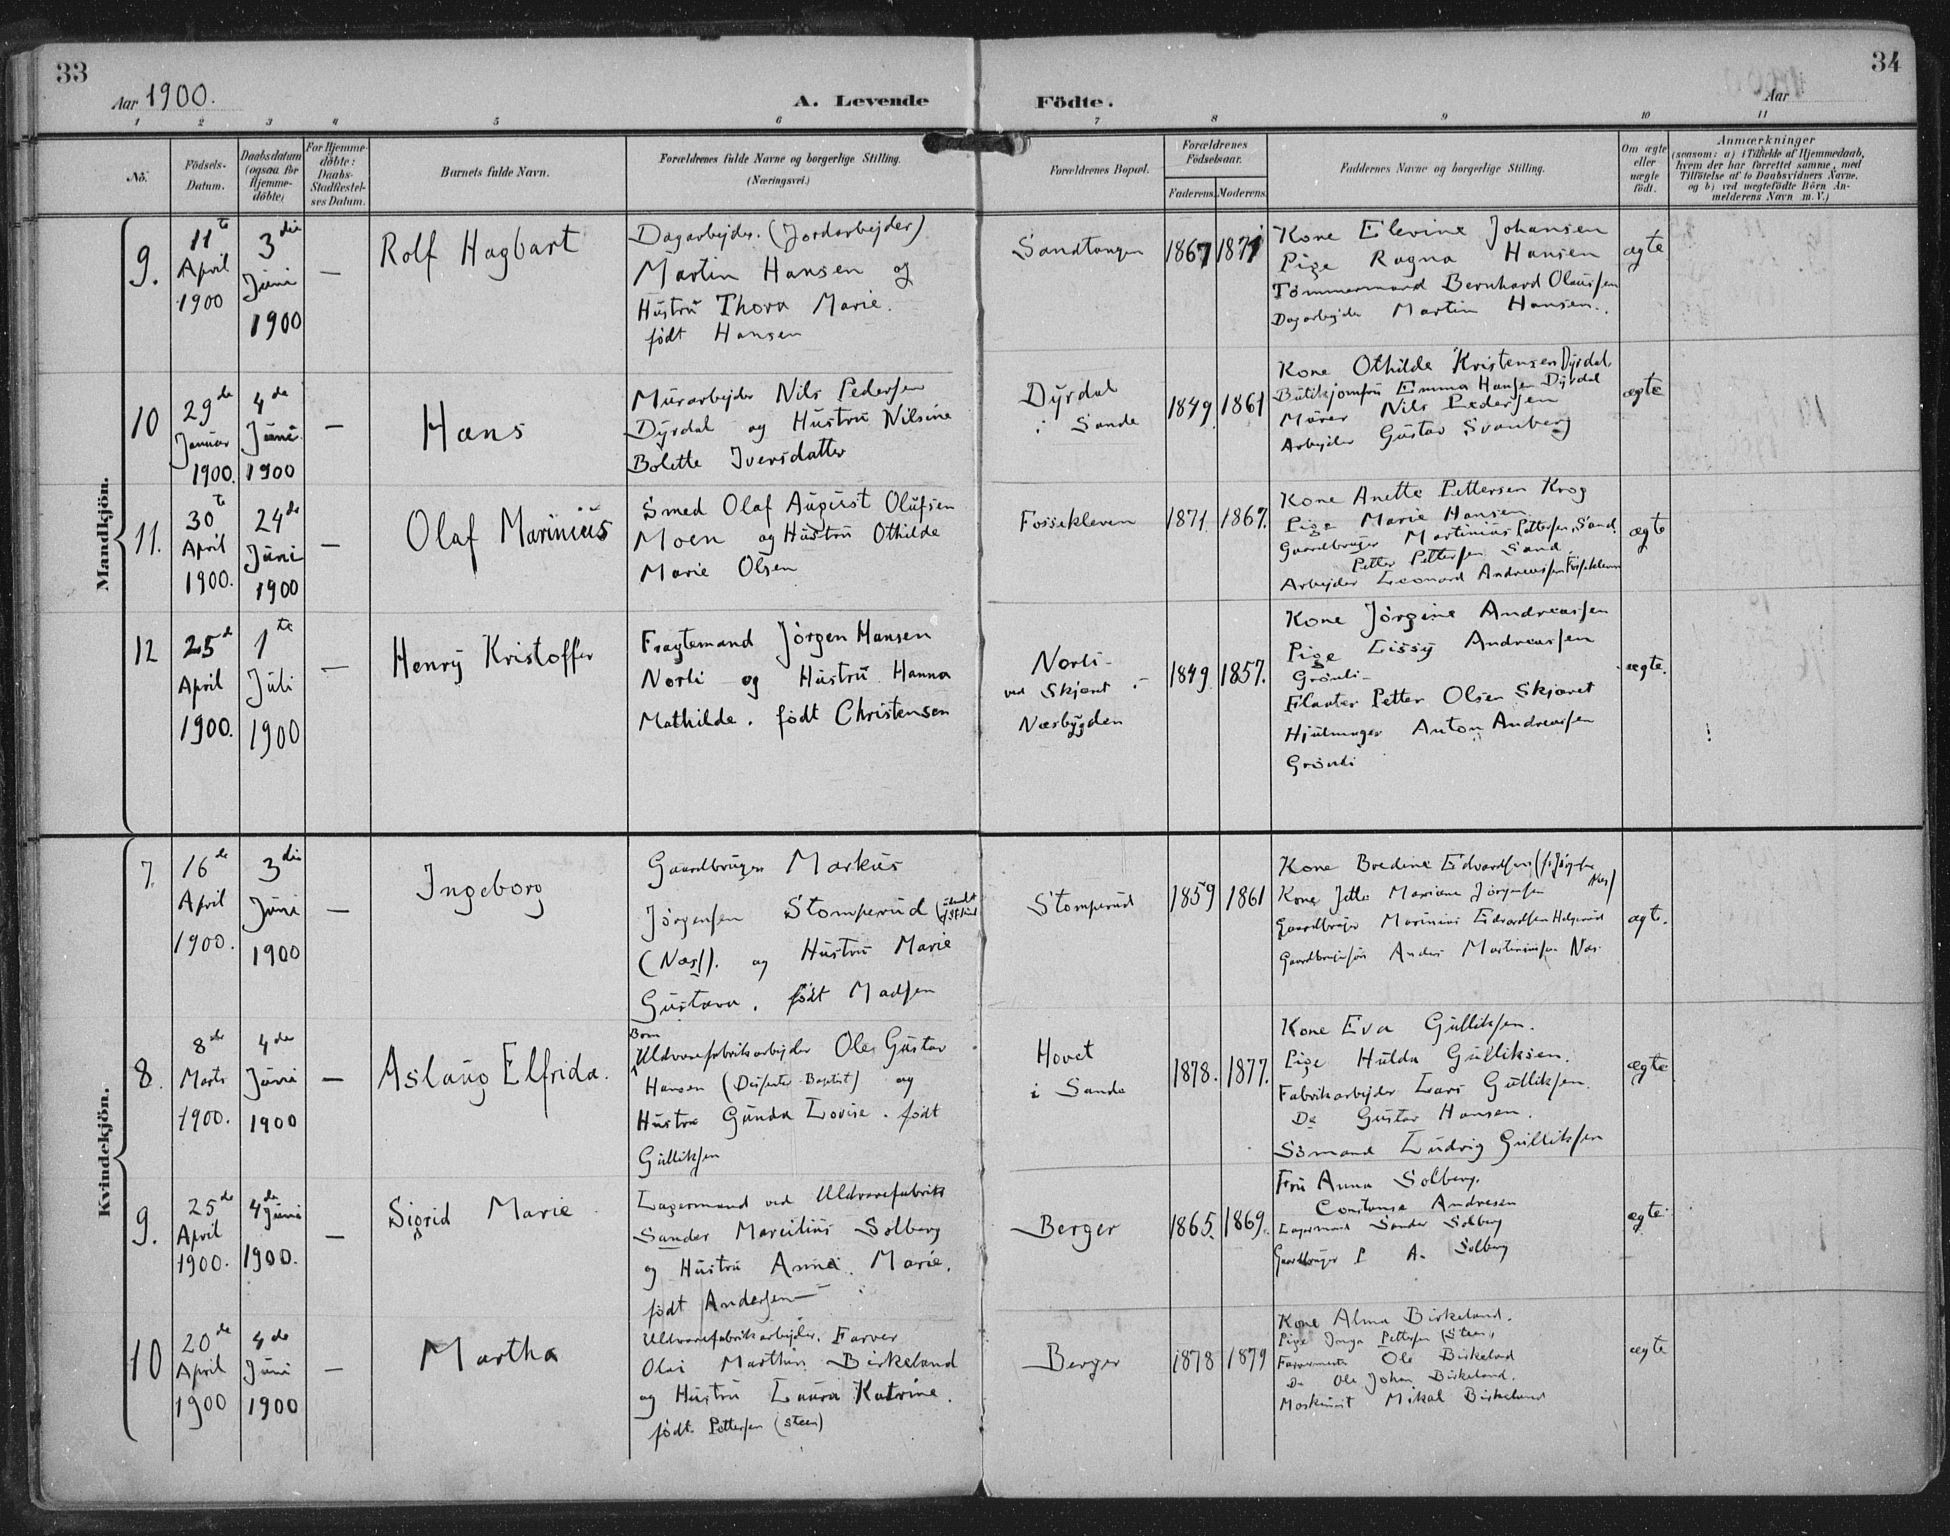 33
Aar 1900.
A. Levende
Födte.
34
Aar
1 2 3 4 5 6 7 8 9 10 11
No.
Födsels-
Datum.
Daabsdatum
(ogsaa for
Hjemme-
döbte)
For Hjemme-
döbte:
Daabs-
Stadfæstel-
ses Datum.
Barnets fulde Navn.
Forældrenes fulde Navne og borgerlige Stilling.
(Næringsvei.)
Forældrenes Bopæl.
Forældrenes
Födselsaar.
Faderens.
Moderens.
Faddernes Navne og borgerlige Stilling.
Om ægte
eller
uægte
födt.
Anmærkninger
(saasom: a) i Tilfælde af Hjemmedaab,
hvem der har forrettet samme, med
Tilföielse af to Daabsvidners Navne,
og b) ved uægtefödte Börn An-
melderens Navn m. V.)
Mandkjön.
9.
11te
April
1900
3die
Juni
1900
—
Rolf Hagbart
Dagarbejder. (Jordarbejder)
Martin Hansen og
Hustru Thora Marie.
født Hansen
Sandtangen
1867
1871
Kone Elevine Johansen
Pige Ragna Hansen
Tømmermand Bernhard Olaussen
Dagarbejder Martin Hansen.
ægte
10
29de
Januar
1900.
4de
Juni
1900
—
Hans
Murarbejder Nils Pedersen
Dyrdal og Hustru Nilsine
Bolette Iversdatter
Dyrdal
i Sande
1849.
1861
Kone Othilde Kristensen Dyrdal
Butikjomfru Emma Hansen Dyrdal
Murer Nils Pedersen
Arbejder Gustav Svanberg
ægte
11.
30te
April
1900.
24de
Juni
1900
—
Olaf Marinius
Smed Olaf August Olufsen
Moen og Hustru Othilde
Marie Olsen
Fossekleven
1871
1867.
Kone Anette Pettersen Krog
Pige Marie Hansen
Gaardbruger Martinius Pettersen, Sand.
Petter Pettersen Sand.
Arbejder Leonard Andreassen Fossekleven
ægte
12
25de
April
1900.
1te
Juli
1900
—
Henry Kristoffer
Fragtemand Jørgen Hansen
Norli og Hustru Hanna
Mathilde. født Christensen
Norli
ved Skjæret i
Næsbygden
1849.
1857.
Kone Jørgine Andreassen
Pige Lissy Andreassen
Grønli
Flaater Petter Olsen Skjæret
Hjulmager Anton Andreassen
Grønli
ægte.
Kvindekjön.
7.
16de
April
1900.
3die
Juni
1900
—
Ingeborg
Gaardbruger Markus
Jørgensen Stomperud
(Næs). og Hustru Marie
Gustava. født Madsen
Stomperud
1859
1861
Kone Bredine Edvardsen
Kone Jette Mariane Jørgensen
Gaardbruger Marinius Edvardsen
Anders Martiniussen Næs.
ægte.
8.
8de
Marts
1900.
4de
Juni
1900
—
Aslaug Elfrida.
Uldvarefabrikarbejder Ole Gustav
Hansen (Disenter-Baptist) og
Hustru Gunda Lovise. født
Gulliksen
Hovet
i Sande
1878.
1877.
Kone Eva Gulliksen.
Pige Hulda Gulliksen.
Fabrikarbejder Lars Gulliksen.
Do Gustav Hansen.
Sømand Ludvig Gulliksen
ægte
9.
25de
April
1900.
4de
Juni
1900.
—
Sigrid Marie
Lagermand ved Uldvarefabrik
Sander Marcilius Solberg
og Hustru Anna Marie.
født Andersen
Berger
1865.
1869.
Fru Anna Solberg.
Constanse Andresen
Lagermand Sander Solberg
Gaardbruger P A. Solberg
ægte
10
20de
April
1900
4de
Juni
1900
—
Martha
Uldvarefabrikarbejder. Farver
Olai Marthin Birkeland
og Hustru Laura Katrine.
født Pettersen (Steen)
Berger
1878
1879
Kone Alma Birkeland.
Pige Inga Pettersen (Steen)
Farvermester Ole Birkeland
Do Ole Johan Birkeland.
Maskinist Mikal Birkeland
ægte